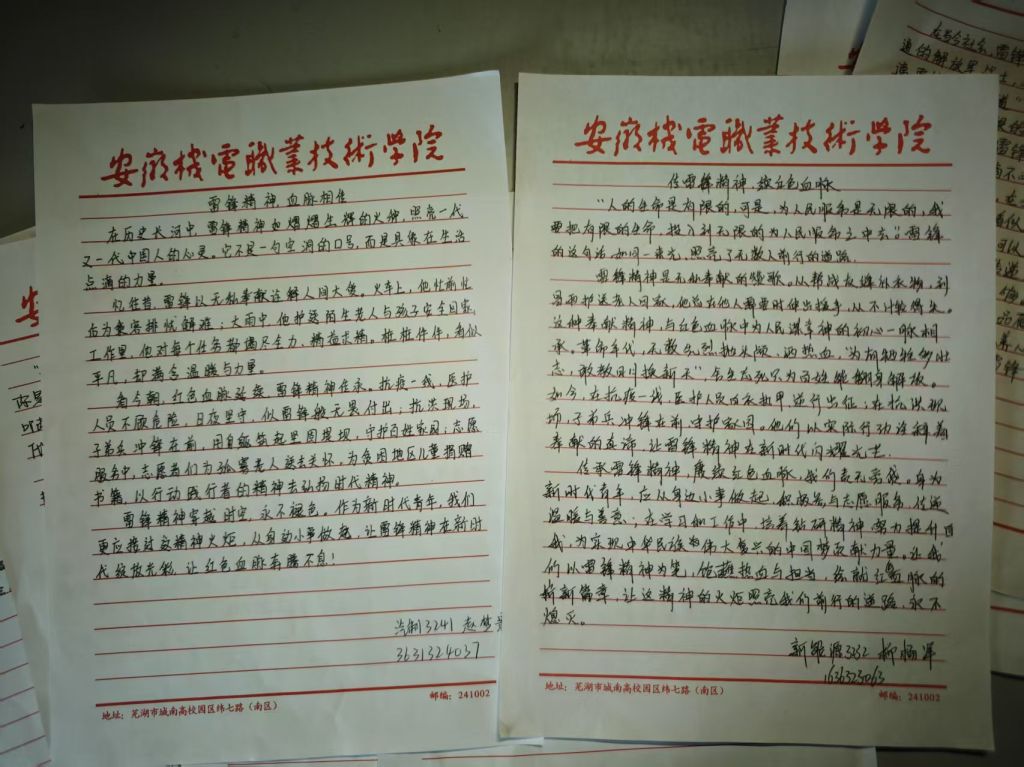 安徽機電職業技術學院
雷锋精神 血脉相传
在历史长河中，雷锋精神如熠熠生辉的火炬，照亮一代
又一代中国人的心灵。它不是一句空洞的口号，而是具像在生活
点滴的力量。
忆往昔，雷锋以无私奉献诠释人间大爱。火车上，他忙前忙
后为乘客排忧解难；大雨中，他护送陌生老人与孩子安全回家，
工作里，他对每个任务都竭尽全力、精益求精。桩桩件件，看似
平凡，却满含温暖与力量。
看今朝，红色血脉延续，雷锋精神传承。抗疫一线，医护
人员不顾危险，日夜坚守，似雷锋般无畏付出；抗洪现场，
子弟兵冲锋在前，用身躯筑起坚固堤坝，守护百姓家园；志愿
服务中，志愿者们为孤寡老人送去关怀，为贫困地区儿童捐赠
书籍，以行动践行者的精神去弘扬时代精神。
雷锋精神穿越时空，永不褪色。作为新时代青年，我们
更应接过这精神火炬，从身边小事做起，让雷锋精神在新时
代绽放光彩，让红色血脉奔腾不息！
汽制3241 赵梦
3631324037
地址：芜湖市城南高校园区纬七路（南区） 邮编：241002
安徽機電職業技術學院
传雷锋精神，续红色血脉
“人的生命是有限的，可是，为人民服务是无限的，我
要把有限的生命，投入到无限的为人民服务之中去”雷锋
的这句话如同一束光，照亮了无数人前行的道路。
雷锋精神是无私奉献的赞歌。从帮战友缝补衣物，到
冒雨护送老人回家，他总在他人需要时伸出援手，从不计较得失。
这种奉献精神，与红色血脉中为人民谋幸福的初心一脉相
承。革命年代，无数先烈抛头颅、洒热血，“为有牺牲多壮
志，敢教日月换新天”，舍生忘死只为百姓能翻身解放。
如今，在抗疫一线，医护人员白衣执甲，逆行出征；在抗洪现
场，子弟兵冲锋在前，守护家园。他们以实际行动诠释着
奉献的真谛，让雷锋精神在新时代闪耀光芒。
传承雷锋精神，赓续红色血脉，我们责无旁贷。身为
新时代青年，应从身边小事做起，积极参与志愿服务，传递
温暖与善意；在学习和工作中，培养钻研精神，努力提升自
我，为实现中华民族伟大复兴的中国梦贡献力量。让我
们以雷锋精神为笔，饱蘸热血与担当，绘就红色血脉的
崭新篇章，让这精神的火炬照亮我们前行的道路，永不
熄灭。
新能源3232 柳
1636323063
地址：芜湖市城南高校园区纬七路（南区） 邮编：241002
在当今社会，雷锋